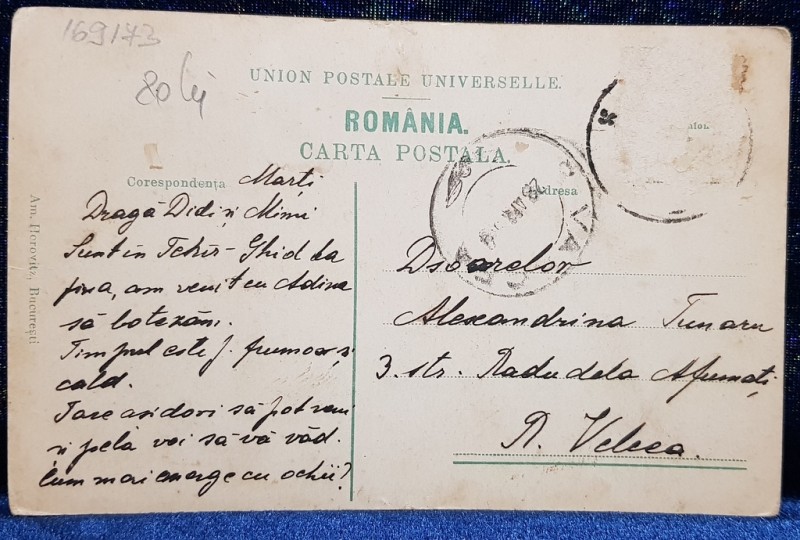 169173
80 lei
UNION POSTALE UNIVERSELLE.
ROMÂNIA.
CARTA POSTALA.
Corespondența
Marți
Dragă Didi și Mimi
Sunt în Tekir-Ghiol la
, am venit cu Adina
să botezăm.
Timpul este f. frumos și
cald.
Tare ași dori să pot veni
și pela voi să vă văd.
Cum mai merge cu ochii?
Am. Horovitz, București
Adresa
Dșoarelor
Alexandrina Tunaru
3. str. Radu dela Afumați
R. Velcea.